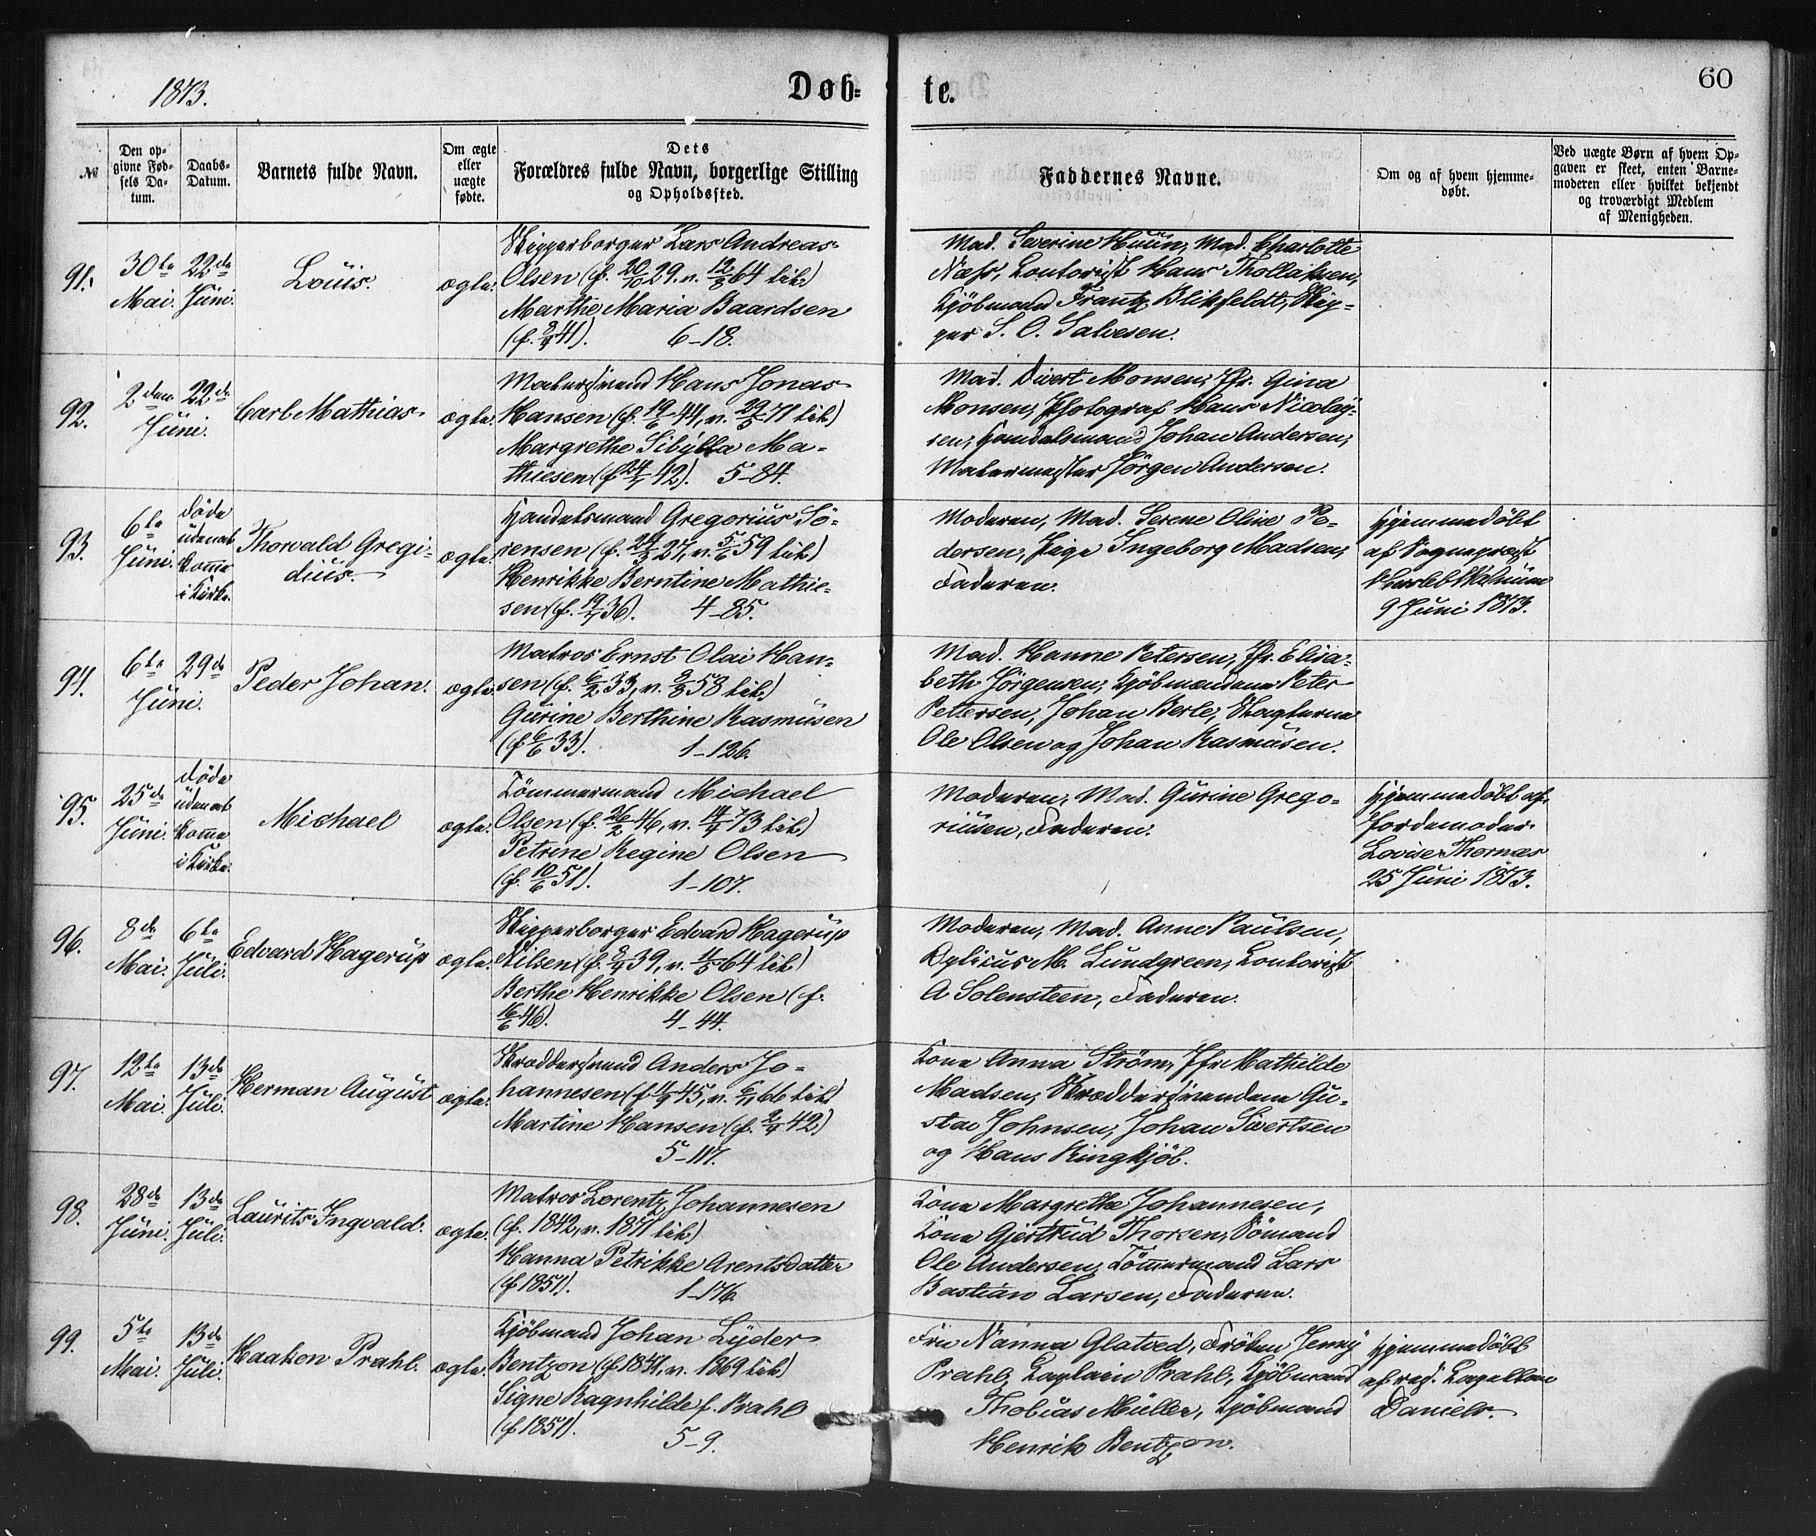 1873.
Døb-
te.
60
№
Den op-
givne Fød-
sels Da-
tum.
Daabs-
Datum.
Barnets fulde Navn.
Om ægte
eller
uægte
fødte.
Dets
Forældres fulde Navn, borgerlige Stilling
og Opholdssted.
Faddernes Navne.
Om og af hvem hjemme-
døbt.
Ved uægte Børn af hvem Op-
gaven er skeet, enten Barne-
moderen eller hvilket bekjendt
og troværdigt Medlem
af Menigheden.
91.
30te
Mai.
22de
Juni.
Louis.
ægte.
Skipperborger Lars Andreas
Olsen (f. 20/10 29. v. 12/8 64 til)
Marthe Maria Baardsen
(f. 41).
6-18.
Mad. Severine Huun, Mad. Charlotte
Næss, Contorist Hans Thollaksen,
Kjøbmand Frantz Blikfeldt, Skip-
per S. O. Salvesen.
92.
2den
Juni.
22de
Carl Mathias
ægte.
Malersvend Hans Jonas
Hansen (f. 19/6 44, v. 29/5 71 til)
Margrethe Sibylla Ma-
thiesen (f. 24/1 42).
5-84.
Mad. Sivert Monsen, Jfr. Gina
Monsen, Photograf Hans Nicolay-
sen, Handelsmand Johan Andersen,
Malermester Jørgen Andersen.
93.
6te
Juni.
døde
udenat
komme
i Kirke.
Thorvald Gregi-
dius.
ægte.
Handelsmand Gregorius Sö-
rensen (f. 27, v. 5/6 59 til)
Henrikke Berntine Mathie-
sen (f. 19/1 36).
4-85.
Moderen, Mad. Serene Oline Pe-
dersen, Pige Ingeborg Madsen,
Faderen.
Hjemmedøbt
af Sognepræst
9 Juni 1873.
94.
6te
Juni.
29de
Peder Johan.
ægte.
Matros Ernst Olai Han-
sen (f. 6/2 33, v. 58 til)
Gurine Berthine Rasmusen
(f. 6/6 33).
1-126.
Mad. Hanne Petersen, Jfr. Elisa-
beth Jørgensen, Kjøbmændene Peter
Pettersen, Johan Berle, Slagterne
Ole Olsen og Johan Rasmusen.
95.
25de
Juni.
døde
udenat
komme
i Kirke.
Michael
ægte.
Tømmermand Michael
Olsen (f. 26/2 46, v. 14/4 73 til)
Petrine Regine Olsen
(f. 10/6 51).
1-107.
Moderen, Mad. Gurine Grego-
riusen, Faderen.
Hjemmedøbt af
Jordemoder
Lovise Thornæs
25 Juni 1873.
96.
8de
Mai.
6te
Juli.
Edvard Hagerup
ægte.
Skipperborger Edvard Hagerup
Nilsen (f. 39, v. 4/5 64 til)
Berthe Henrikke Olsen (f.
16/6 46).
4-44.
Moderen, Mad. Anne Paulsen,
M. Lundgreen, Contorist
A Solensteen, Faderen.
97.
12te
Mai.
13de
Juli.
Herman August
ægte.
Skræddersvend Anders Jo-
hannesen (f. 45, v. 66 til)
Martine Hansen (f. 42)
5-117.
Kone Anna Strøm, Jfr Mathilde
Madsen, Skræddersvendene Gu-
stav Johnsen, Johan Sivertsen
og Hans Ringkjöb.
98.
28de
Juni.
13de
Juli.
Laurits Ingvald.
ægte.
Matros Lorentz Johannesen
(f. 1842, v. 1871 til)
Hanna Petrikke Arentsdatter
(f 1851).
1-176.
Kone Margrethe Johannesen,
Kone Gjertrud Thorsen, Sömand
Ole Andersen, Tömmermand Lars
Bastian Larsen, Faderen.
99.
5te
Mai.
13de
Juli.
Haakon Prahl.
ægte.
Kjöbmand Johan Lyder
Bentzon (f. 1841, v. 1869 til)
Signe Ragnhilde f. Prahl
(f 1851).
5-9.
Fru Nanna Glatved, Frøken Jenny
Prahl, Captain Prahl, Kjöbmand
Thobias Müller, Kjöbmand
Henrik Bentzon.
Hjemmedøbt
af res. Capellan
Daniels.